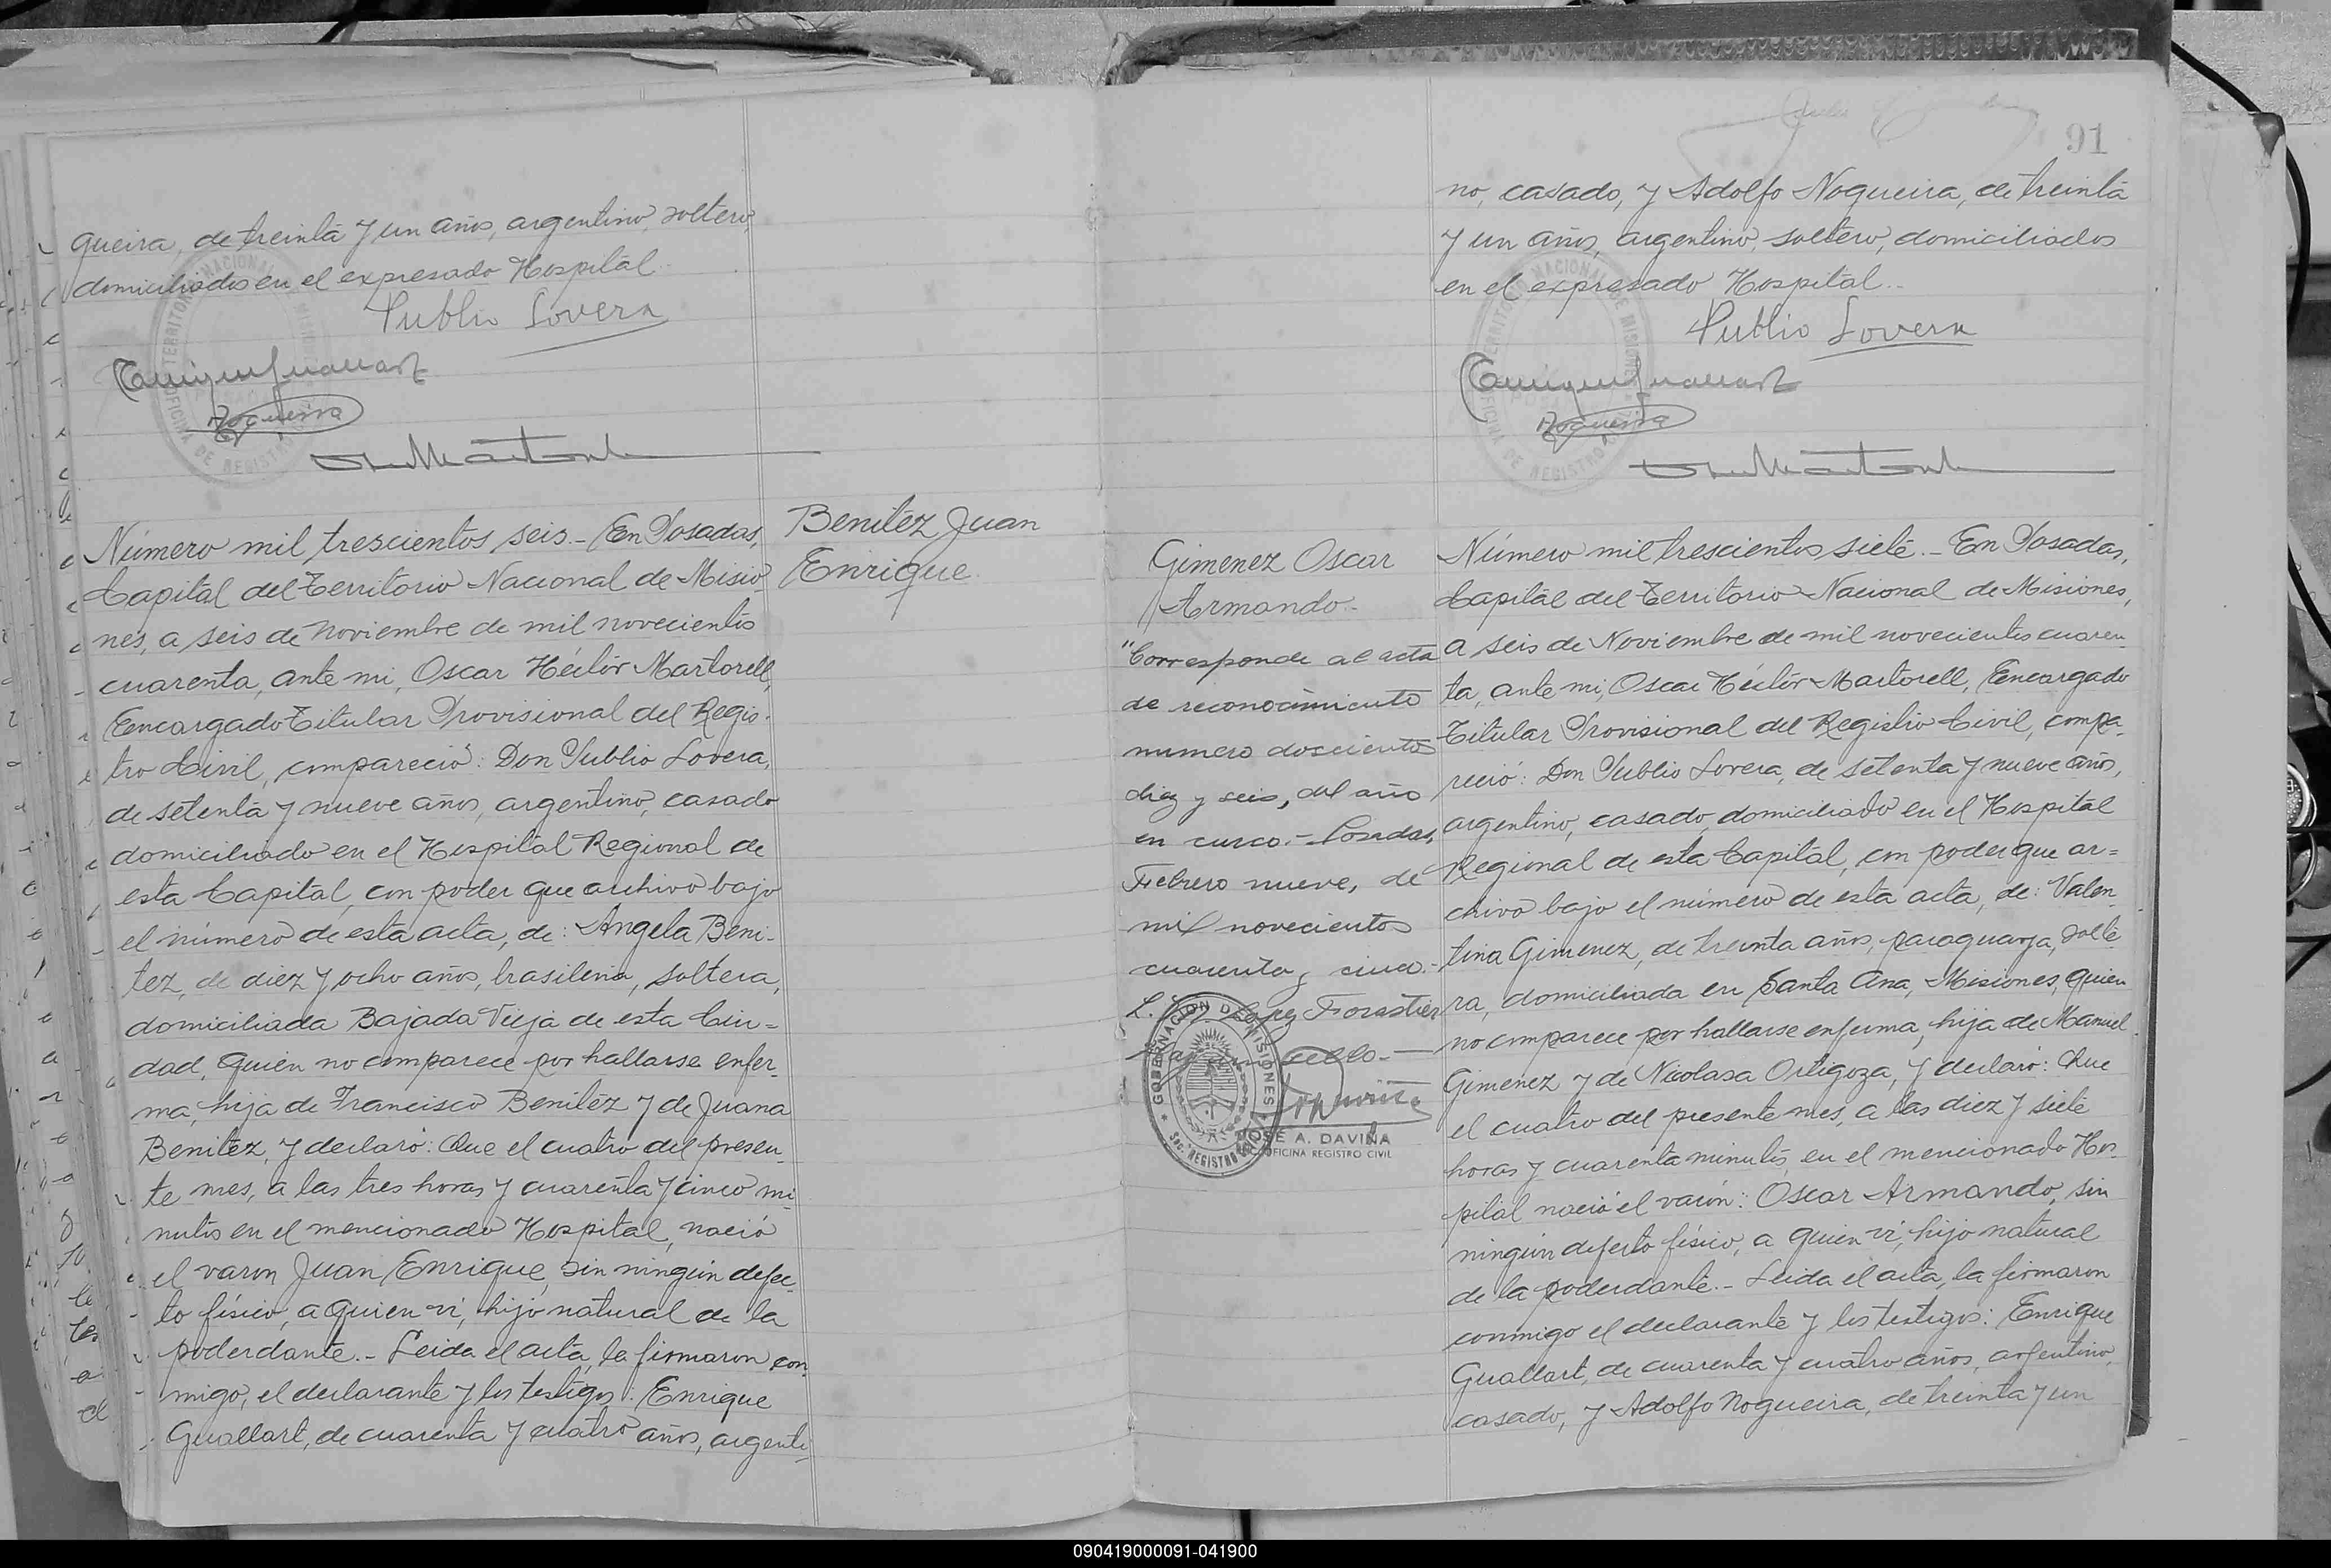 queira, de treinta y un años, argentino, soltero,
domiciliados en el expresado Hospital.
Publio Lovera
Nogueira
Número mil trescientos seis.- En Posadas,
Capital del Territorio Nacional de Misio-
nes, a seis de noviembre de mil novecientos
cuarenta, ante mi, Oscar Héctor Martorell,
Encargado Titular Provisional del Regis-
tro Civil, compareció: Don Publio Lovera,
de setenta y nueve años, argentino, casado
domiciliado en el Hospital Regional de
esta Capital, con poder que archivo bajo
el número de esta acta, de: Angela Beni-
tez, de diez y ocho años, brasilena, soltera,
domiciliada Bajada Vieja de esta Ciu=
dad, quien no comparece por hallarse enfer-
ma, hija de Francisco Benitez y de Juana
Benitez, y declaró: Que el cuatro del presen-
te mes, a las tres horas y cuarenta y cinco mi-
nutos en el mencionado Hospital, nació
el varon Juan Enrique, sin ningún defec-
to físico, a quien vi, hijo natural de la
poderdante.- Leida el acta, la firmaron con-
migo, el declarante y los testigos: Enrique
Guallart, de cuarenta y cuatro años, argenti-
Benitez Juan
Enrique
91
no, casado, y Adolfo Nogueira, de treinta
y un años, argentino, soltero, domiciliados
en el expresado Hospital.-
Publio Lovera
Nogueira
Gimenez Oscar
Armando.-
"Corresponde al acta
de reconocimiento
numero doscientos
diez y seis, del año
en curso.- Posadas,
Febrero nueve, de
mil novecientos
cuarenta y cinco.-
L. Lopez Forastier
sello.-
GOBERNACION DE MISIONES
SEC. REGISTRO CIVIL
JOSÉ A. DAVIÑA
OFICINA REGISTRO CIVIL
Número mil trescientos siete.- En Posadas,
Capital del Territorio Nacional de Misiones,
a seis de Noviembre de mil novecientos cuaren-
ta, ante mi, Oscar Héctor Martorell, Encargado
Titular Provisional del Registro Civil, compa-
reció: Don Publio Lovera, de setenta y nueve años,
argentino, casado, domiciliado en el Hospital
Regional de esta Capital, con poder que ar=
chivo bajo el número de esta acta, de: Valen-
tina Gimenez, de treinta años, paraguaya, solte
ra, domiciliada en Santa Ana, Misiones, quien
no comparece por hallarse enferma, hija de Manuel
Gimenez y de Nicolasa Ortigoza, y declaró: Que
el cuatro del presente mes, a las diez y siete
horas y cuarenta minutos, en el mencionado Hos-
pital nació el varón: Oscar Armando, sin
ningún defecto físico, a quien vi, hijo natural
de la poderdante.- Leida el acta, la firmaron
conmigo el declarante y los testigos: Enrique
Guallart, de cuarenta y cuatro años, argentino,
casado, y Adolfo Nogueira, de treinta y un
090419000091-041900